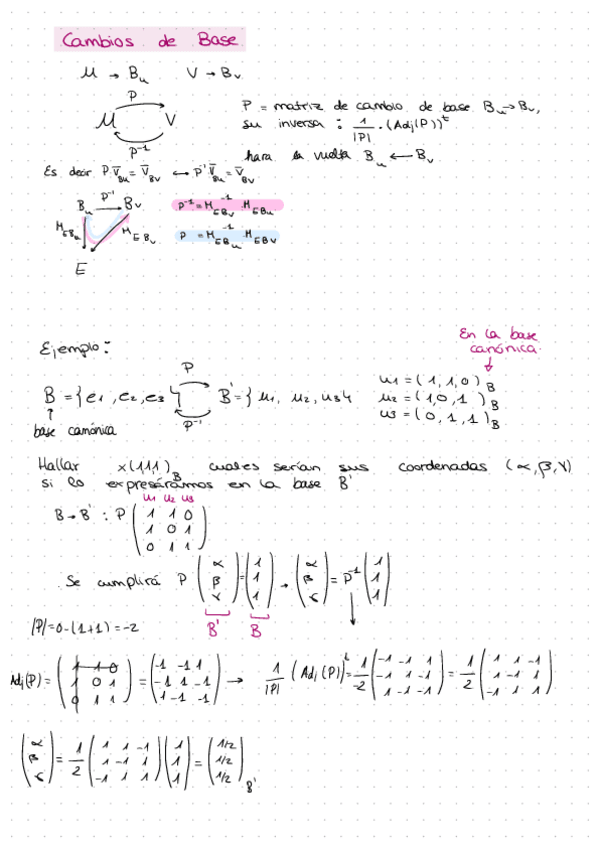 Cambios de Base
U → B_u   V → B_v
P
U   V
P⁻¹
P = matriz de cambio de base B_u → B_v,
su inversa : 1/|P| · (Adj(P))^t
hara la vuelta B_u ← B_v
Es decir P V̄_Bu = V̄_Bv ↔ P⁻¹ V̄_Bu = V̄_Bv
B_u P⁻¹ → B_v
M_EBu   M_EBv
E
P⁻¹ = M_EBv⁻¹ · M_EBu
P = M_EBu⁻¹ · M_EBv
En la base
canónica
Ejemplo:
P
B = {e1, e2, e3}   B' = {u1, u2, u3}
P⁻¹
base canónica
u1 = (1,1,0)_B
u2 = (1,0,1)_B
u3 = (0,1,1)_B
Hallar x(111)_B cuales serían sus coordenadas (α,β,γ)
si lo expresáramos en la base B'
u1 u2 u3
B→B' : P (1 1 0
1 0 1
0 1 1)
Se cumplirá P (α β γ) = (1 1 1) → (α β γ) = P⁻¹ (1 1 1)
B'   B
|P| = 0-(1+1) = -2
Adj(P) = (1 1 0 / 1 0 1 / 0 1 1) = (-1 -1 1 / -1 1 -1 / 1 -1 -1) → 1/|P| (Adj(P))^t = 1/-2 (-1 -1 1 / -1 1 -1 / 1 -1 -1) = 1/2 (1 1 -1 / 1 -1 1 / -1 1 1)
(α β γ) = 1/2 (1 1 -1 / 1 -1 1 / -1 1 1) (1 1 1) = (1/2 1/2 1/2)_B'